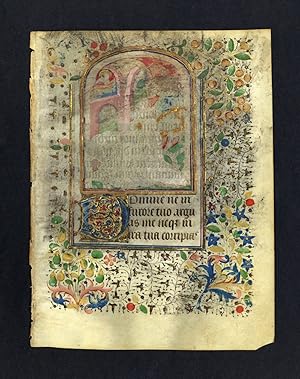 Domine ne in
furore tuo argu
as me neqʒ in
ira tua corripia